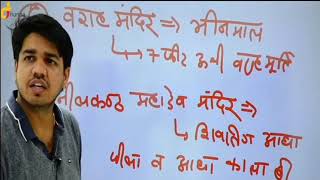 वराह मंदिर ⇒ भीनमाल
↳ 7 फीट ऊंची वराह मूर्ति
नीलकण्ठ महादेव मंदिर ⇒
↳ शिवलिंग आधा
पीला व आधा काला है